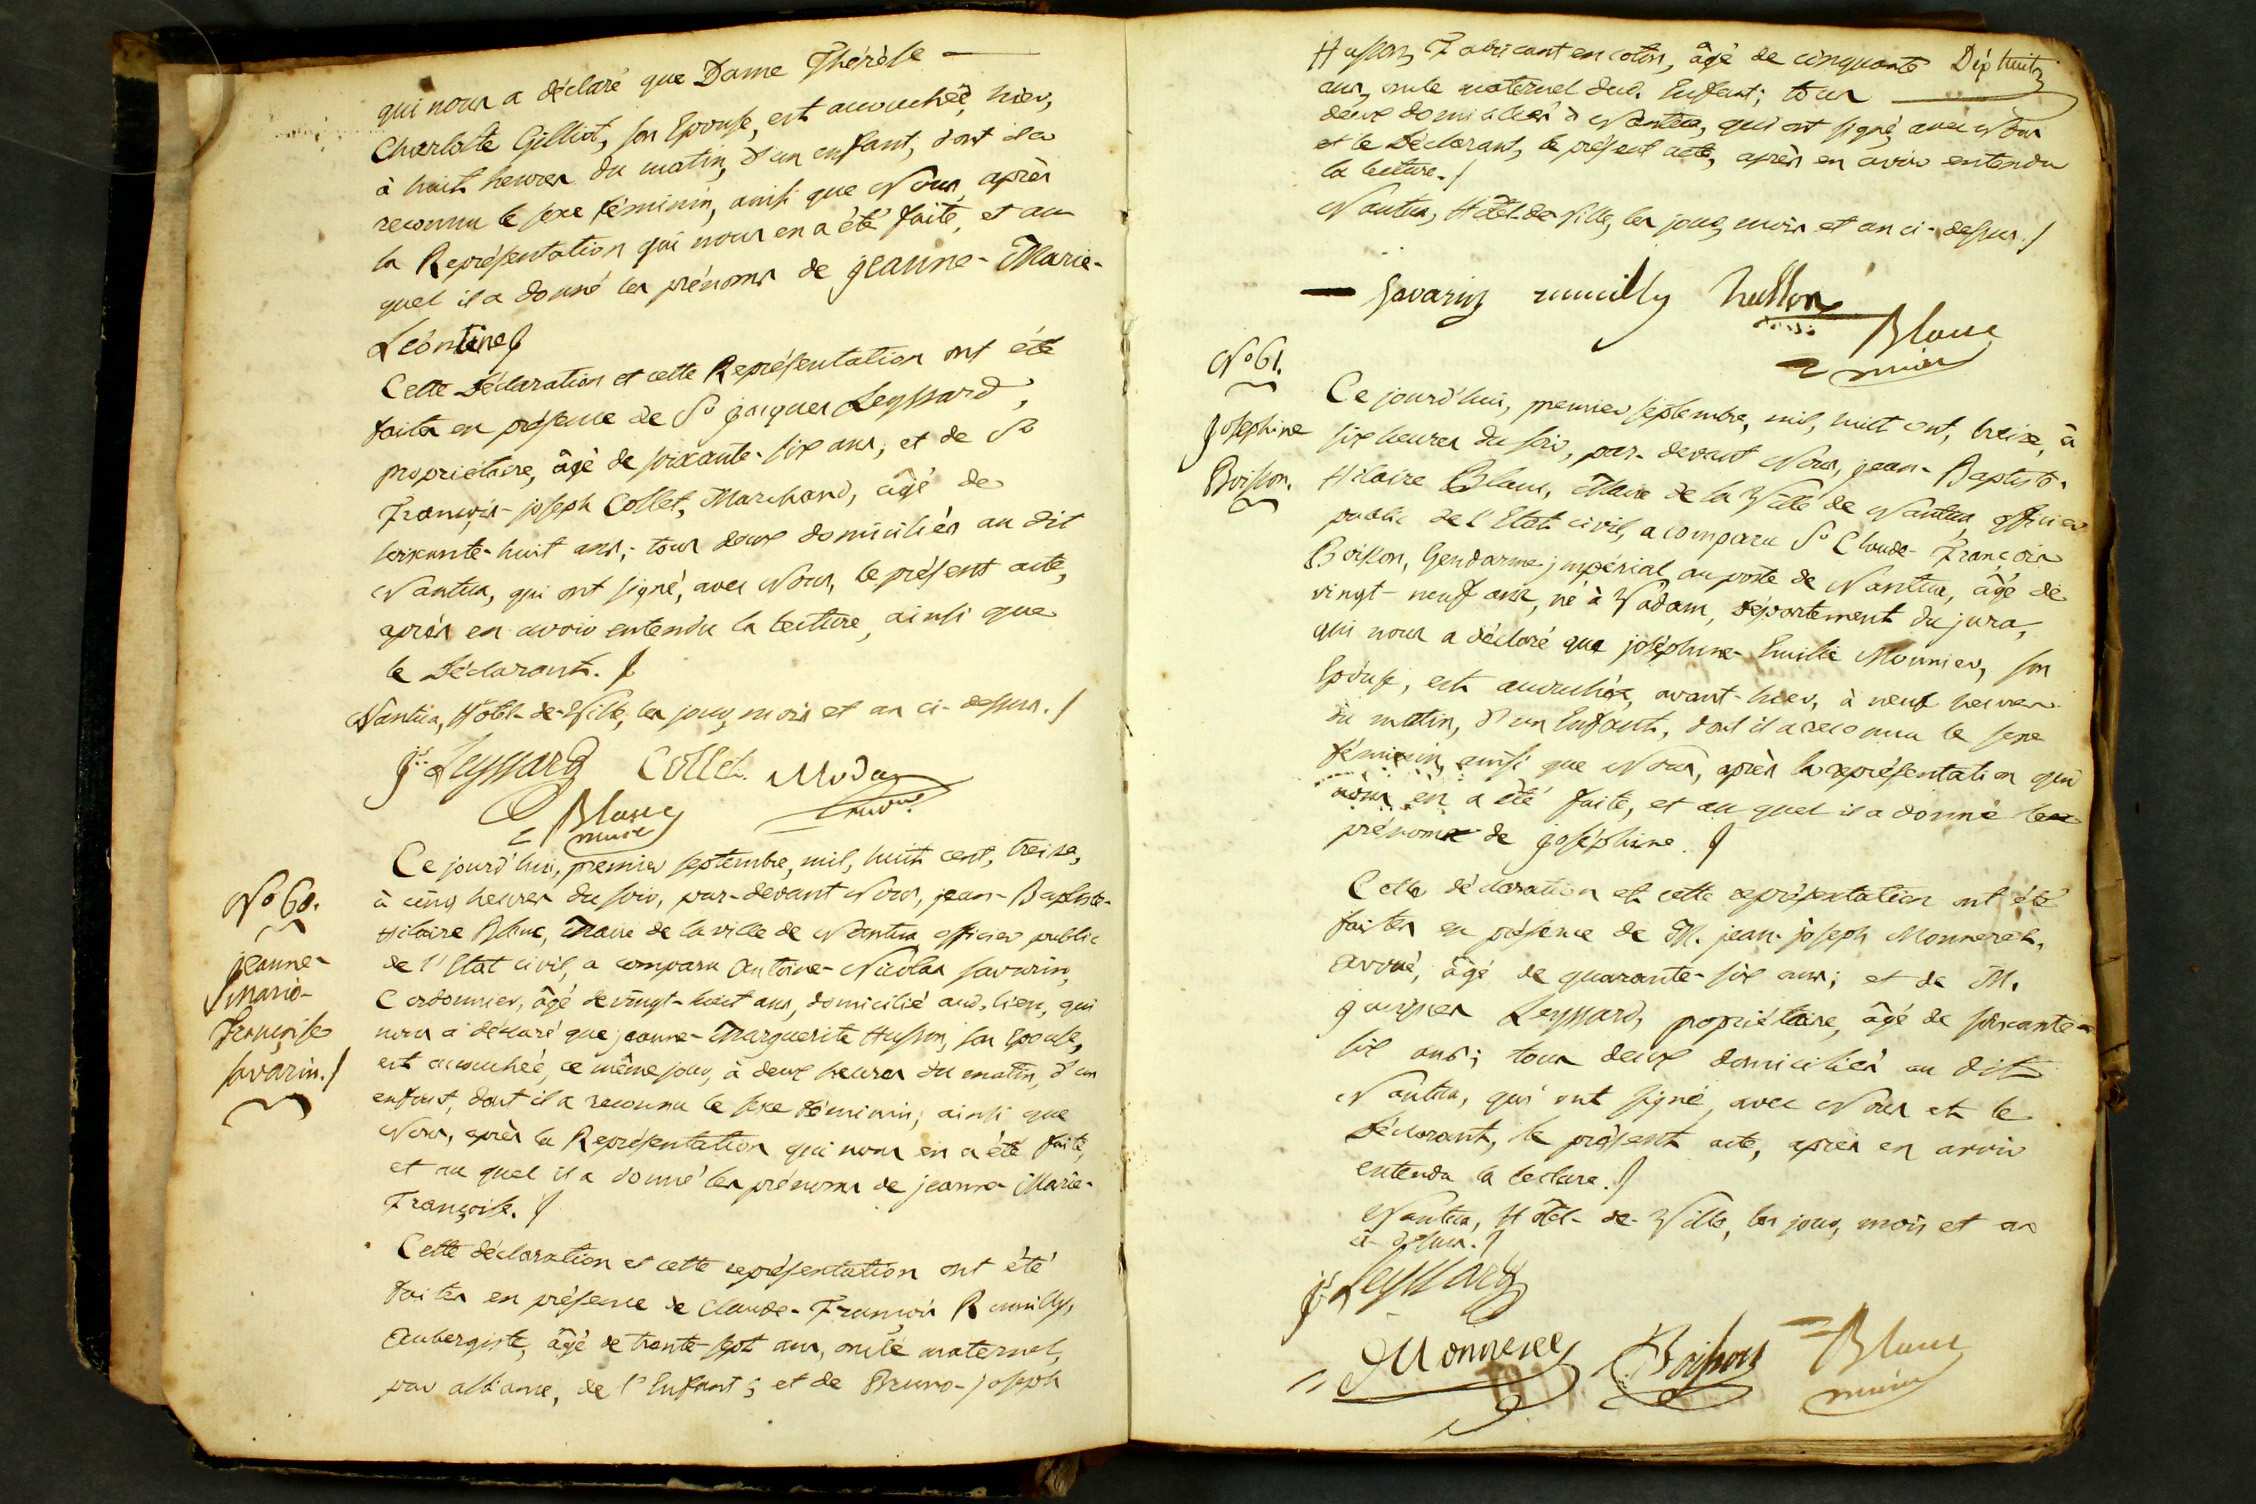 qui nous a déclaré que Dame Thérèse
Charlotte Gilliot, son Epouse, est accouchée, hier,
à huit heures du matin, d'un enfant, dont il a
reconnu le sexe féminin, ainsi que Nous, après
la Représentation qui nous en a été faite, et au
quel il a donné les prénoms de jeanne-Marie-
Léontine
Cette Déclaration et cette Représentation ont été
faites en présence de Sr jacques Leyssard,
propriétaire, âgé de soixante-six ans, et de Sr
François-joseph Collet, Marchand, âgé de
soixante-huit ans; tous deux domiciliés au dit
Nantua, qui ont signé, avec Nous, le présent acte,
après en avoir entendu la lecture, ainsi que
le Déclarant.
Nantua, Hôtel-de-Ville, les jour, mois et an ci-dessus./
js. Leyssard Collet.
Blanc
maire
No 60.
jeanne-
Marie-
Françoise
Savarin./
Ce jourd'hui, premier septembre, mil, huit cent, treize,
à cinq heures du soir, par-devant Nous, jean-Baptiste-
Hilaire Blanc, Maire de la ville de Nantua officier public
de l'Etat civil, a comparu Antoine-Nicolas Savarin,
Cordonnier, âgé de vingt-huit ans, domicilié aud. lieu, qui
nous a déclaré que jeanne-Marguerite Husson, son Epouse,
est accouchée, ce même jour, à deux heures du matin, d'un
enfant, dont il a reconnu le sexe féminin; ainsi que
Nous, après la Représentation qui nous en a été faite,
et au quel il a donné les prénoms de jeanne Marie-
Françoise.
Cette déclaration et cette représentation ont été
faites en présence de Claude-François Rumilly,
Aubergiste, âgé de trente-sept ans, oncle maternel,
par alliance, de l'Enfant; et de Bruno-joseph
Dix huit
Husson, Fabricant en coton, âgé de cinquante
ans, oncle maternel dud. Enfant; tous
deux domiciliés à Nantua, qui ont signé, avec Nous
et le Déclarant, le présent acte, après en avoir entendu
la lecture./
Nantua, Hôtel-de-Ville, les jour, mois et an ci-dessus./
Savarin rumilly husson
Blanc
maire
No 61.
joséphine
Boisson.
Ce jourd'hui, premier septembre, mil, huit cent, treize, à
six heures du soir, par-devant Nous, jean-Baptiste-
Hilaire Blanc, Maire de la Ville de Nantua officier
public de l'Etat civil, a comparu Sr Claude-François
Boisson, Gendarme impérial au poste de Nantua, âgé de
vingt-neuf ans, né à Vadans, Département du jura,
qui nous a déclaré que joséphine-Emilie Monnier, son
Epouse, est accouchée, avant-hier, à neuf heures
du matin, d'un Enfant, dont il a reconnu le sexe
féminin, ainsi que Nous, après la représentation qui
nous en a été faite, et au quel il a donné les
prénoms de joséphine.
Cette déclaration et cette représentation ont été
faites en présence de M. jean-joseph Monneret,
avoué, âgé de quarante-six ans; et de M.
jacques Leyssard, propriétaire, âgé de soixante-
six ans; tous deux domiciliés au dit
Nantua, qui ont signé, avec Nous et le
Déclarant, le présent acte, après en avoir
entendu la lecture.
Nantua, Hôtel-de-Ville, les jour, mois et an
ci-dessus.
js. Leyssard
Monneret Boisson Blanc
maire